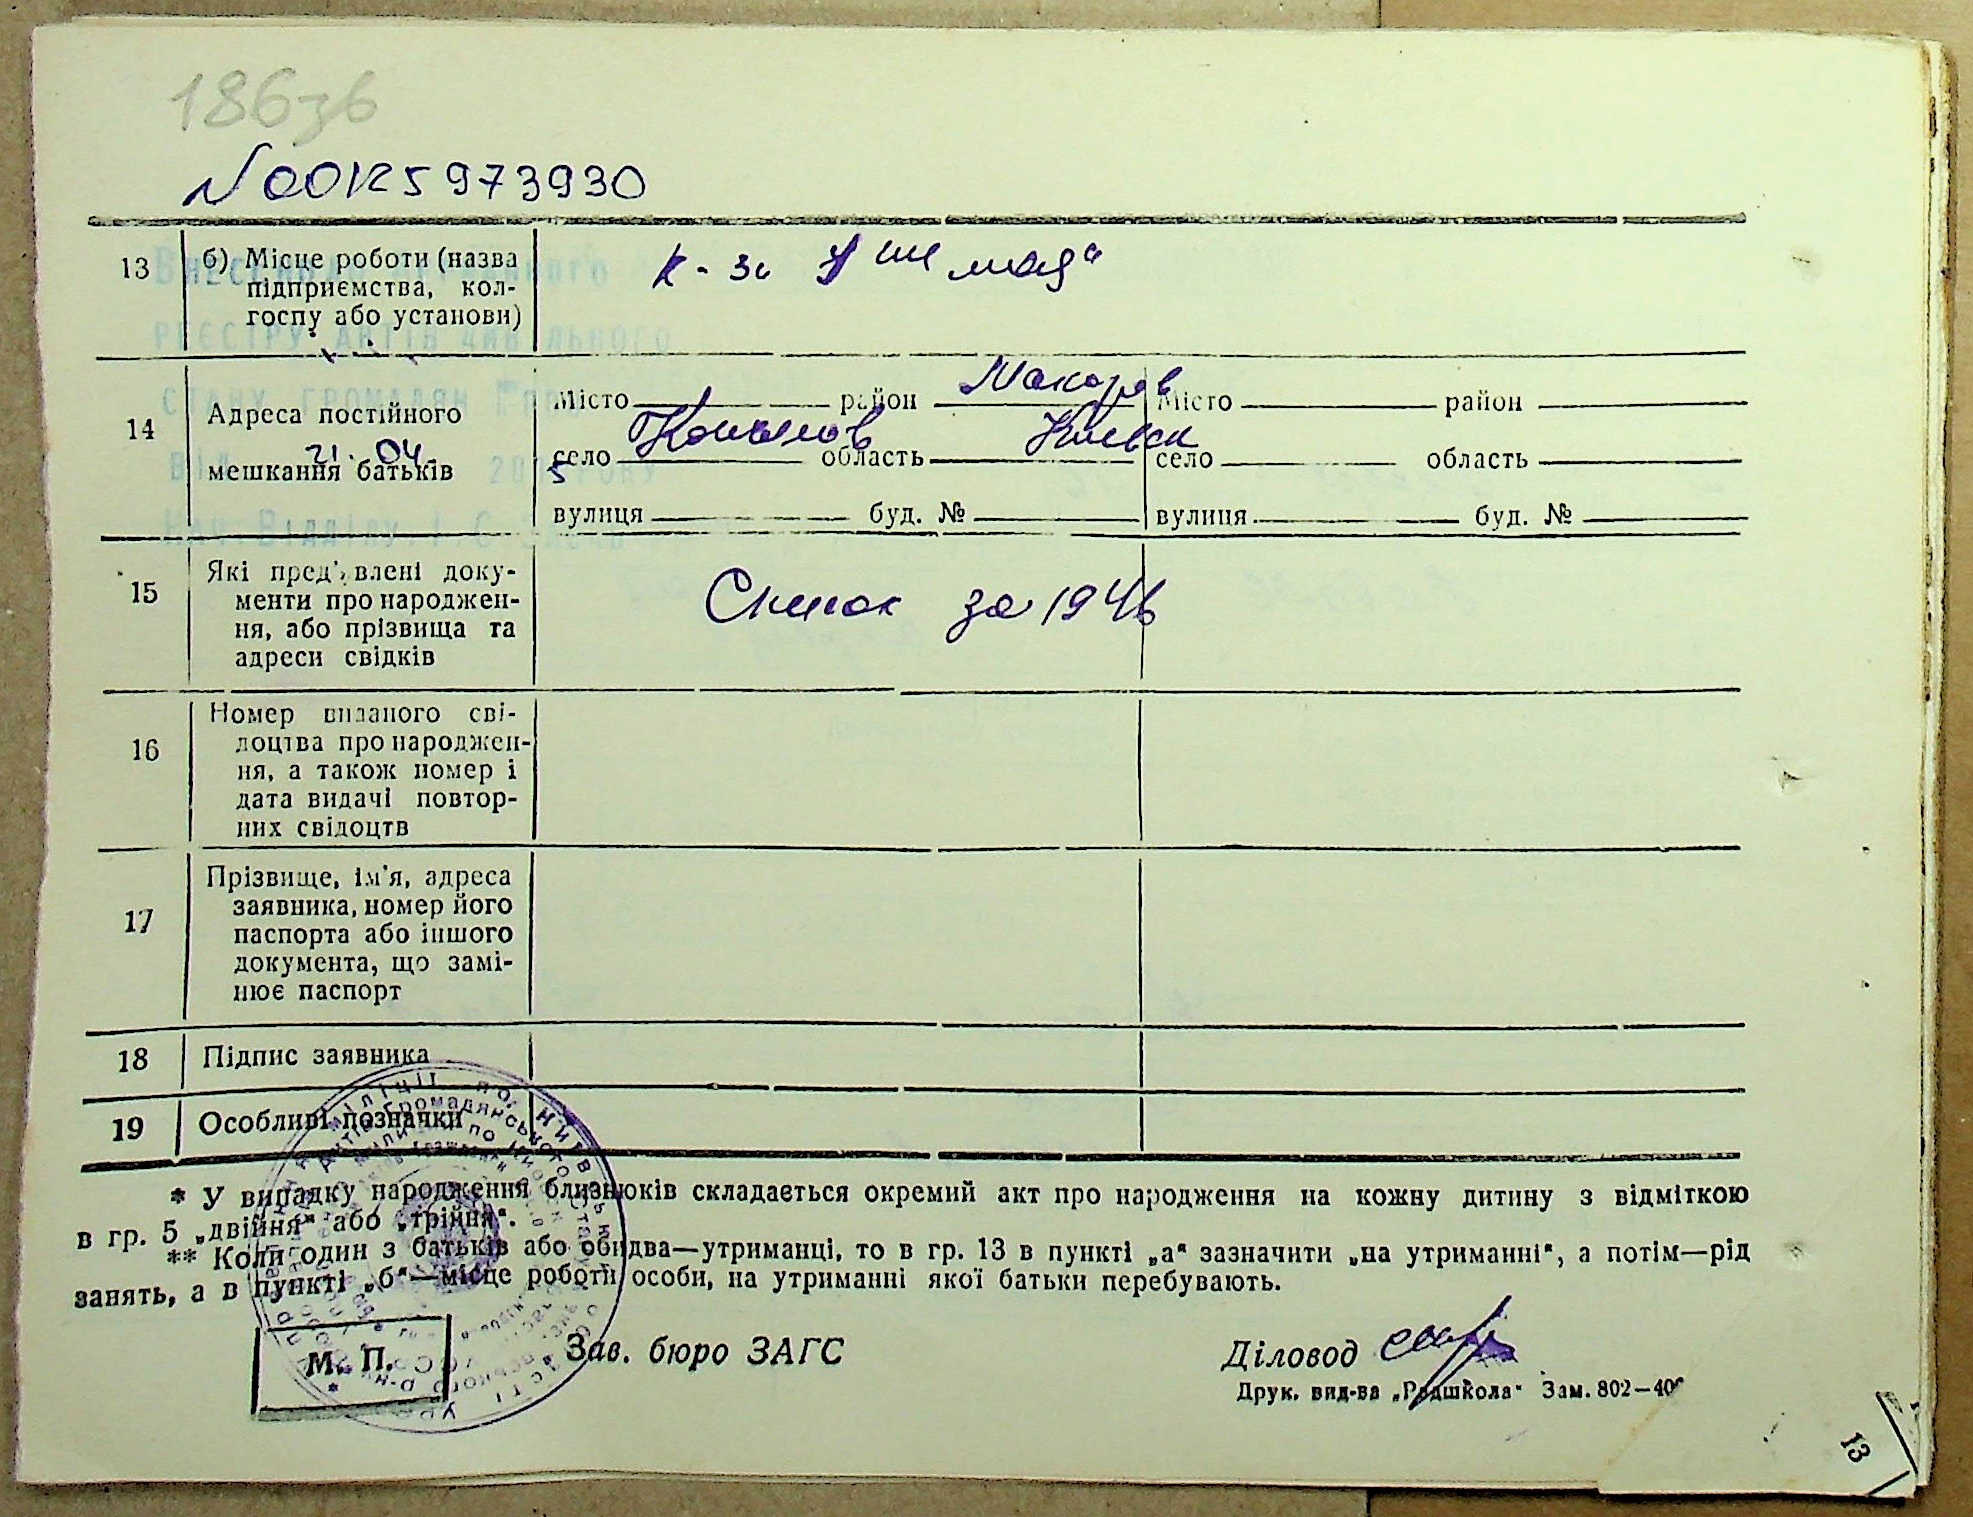 186зв
N00125973930
13 б) Місце роботи (назва
підприємства, кол-
госпу або установи)
к-зі 1ше мая"
Внесено до Державного
реєстру актів цивільного
стану громадян
від 21.04. 2015 року
Нач. Відділу І.С.
14 Адреса постійного
мешкання батьків
Місто район Макарів Місто район
село Копилов область Київськ село область
вулиця буд. № вулиця буд. №
15 Які пред'явлені доку-
менти про народжен-
ня, або прізвища та
адреси свідків
Список за 1946
16 Номер виданого сві-
доцтва про народжен-
ня, а також номер і
дата видачі повтор-
них свідоцтв
17 Прізвище, ім'я, адреса
заявника, номер його
паспорта або іншого
документа, що замі-
нює паспорт
18 Підпис заявника
19 Особливі позначки
* У випадку народження близнюків складається окремий акт про народження на кожну дитину з відміткою
в гр. 5 „двійня" або „трійня".
** Коли один з батьків або обидва—утриманці, то в гр. 13 в пункті „а" зазначити „на утриманні", а потім—рід
занять, а в пункті „б"—місце роботи особи, на утриманні якої батьки перебувають.
М. П. Зав. бюро ЗАГС Діловод
Друк. вид-ва „Радшкола" Зам. 802—40
13